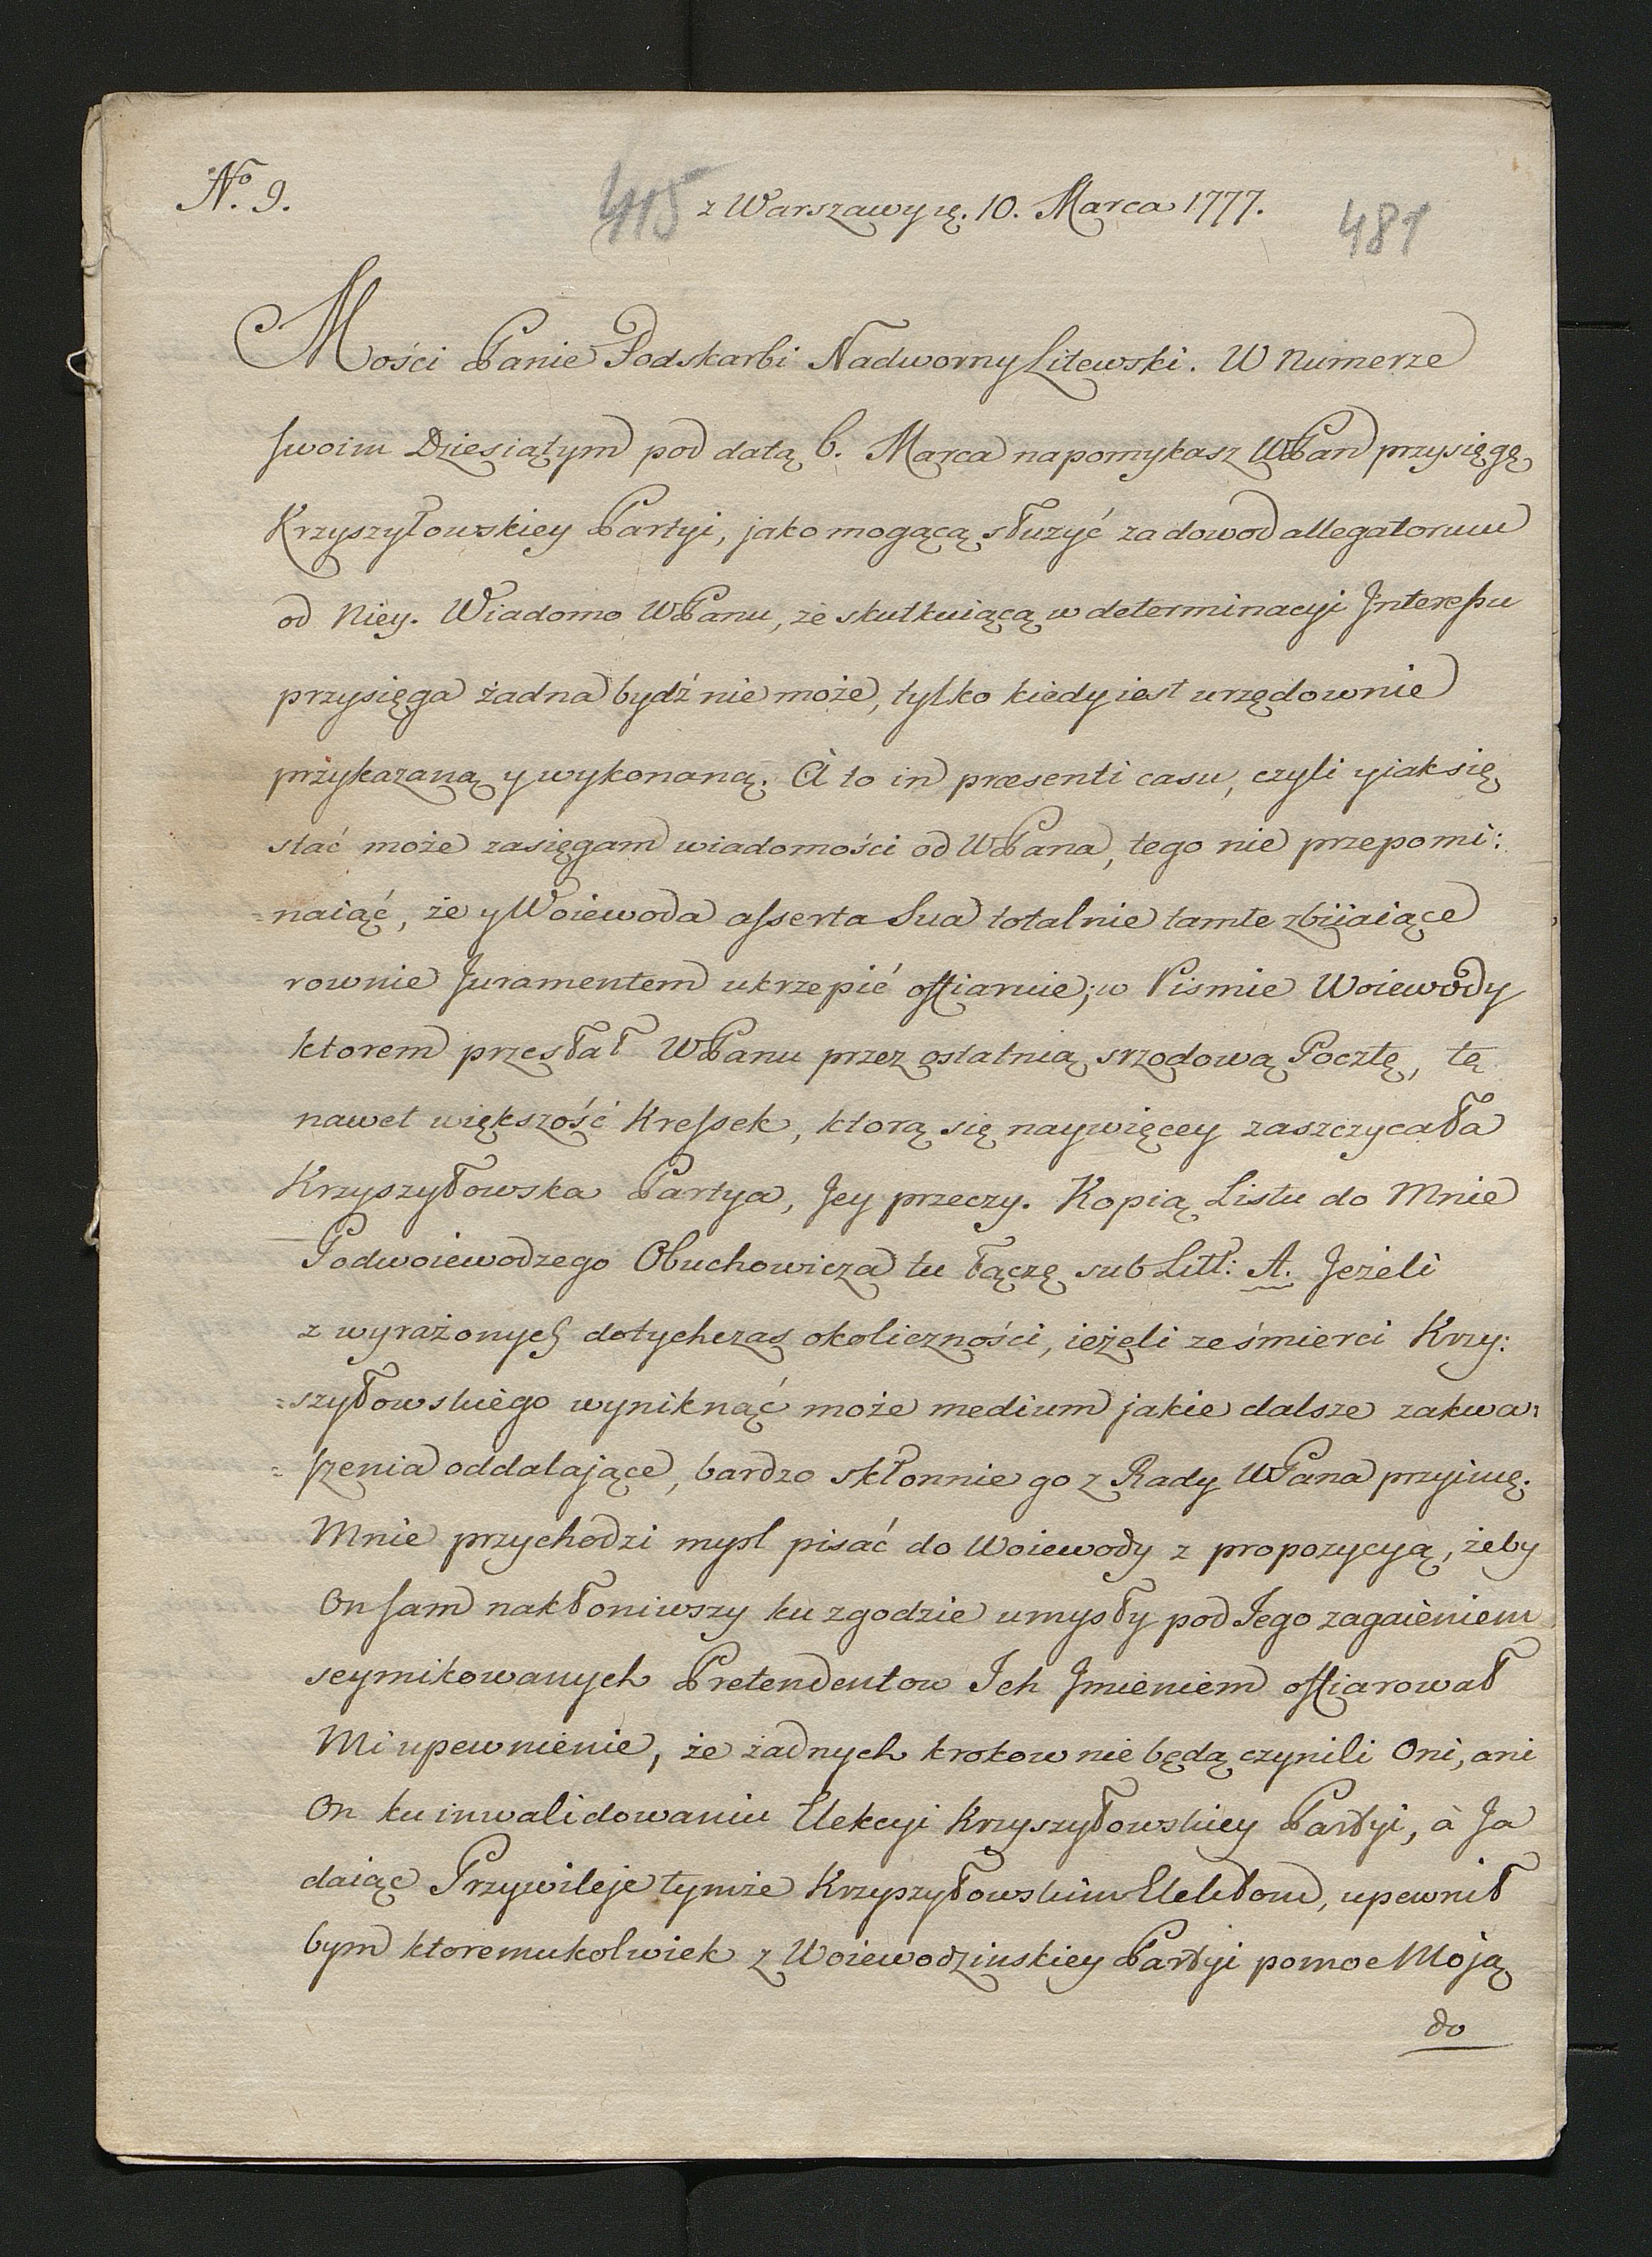 No. 9.
415
z Warszawy ię. 10. Marca 1777.
481
Mości Panie Podskarbi Nadworny Litewski. W Numerze
swoim Dziesiątym pod datą 6. Marca napomykasz WPan przysięgę
Krzyszyłowskiey Partyi, jako mogącą służyć za dowod allegatorum
od Niey. Wiadomo WPanu, że skutkuiącą w determinacyi Interessu
przysięga żadna bydź nie może, tylko kiedy iest urzędownie
przykazaną y wykonaną. A to in præsenti casu, czyli y iak się
stać może zasięgam wiadomości od WPana, tego nie przepomi:
=naiąć, że y Woiewoda asserta Sua totalnie tamte zbiiaiące
rownie Juramentem ukrzepić offiaruie; w Pismie Woiewody
ktorem przesłał WPanu przez ostatnią srzodową Pocztę, tę
nawet większość Kressek, ktorą się naywięcey zaszczycała
Krzyszyłowska Partya, Jey przeczy. Kopią Listu do Mnie
Podwoiewodzego Obuchowicza tu łączę sub Litt: A. Jeżeli
z wyrażonych dotychczas okoliczności, ieżeli ze śmierci Krzy:
=szyłowskiego wyniknąć może medium jakie dalsze zakwa:
=szenia oddalające, bardzo skłonnie go z Rady WPana przyimę.
Mnie przychodzi mysl pisać do Woiewody z propozycyą, żeby
On sam nakłoniwszy ku zgodzie umysły pod Jego zagaieniem
seymikowanych Pretendentow Ich Jmieniem offiarował
Mi upewnienie, że żadnych krokow nie będą czynili Oni, ani
On ku inwalidowaniu Elekcyi Krzyszyłowskiey Partyi, à Ja
daiąc Przywileje tymże Krzyszyłowskim Elektom, upewnił
bym ktoremukolwiek z Woiewodzinskiey Partyi pomoc Moją
do